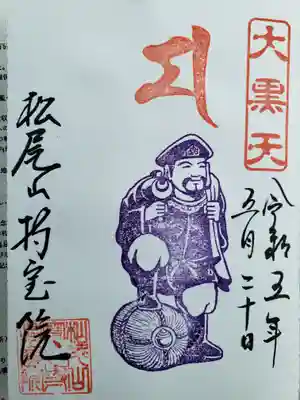 大黒天
令和五年
五月二十日
松尾山持宝院